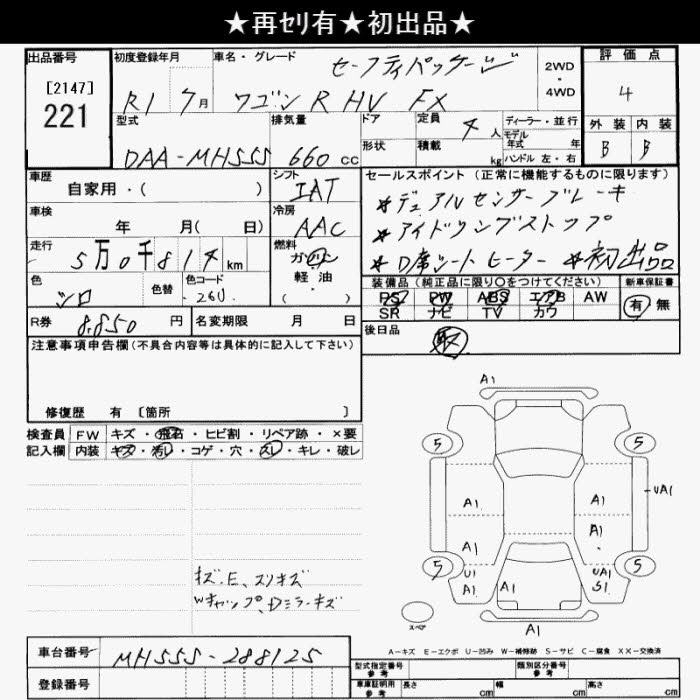 ★再ｾﾘ有★初出品★
出品番号
[2147]
221
初度登録年月
R1 7月
車名・グレード
セーフティパッケージ
ワゴンR HV FX
2WD
・
4WD
評価点
4
外装 内装
B B
型式
DAA-MH55S
排気量
660 cc
ドア
形状
定員 4 人
積載 kg
ディーラー・並行
モデル
年式 年
ハンドル 左・右
車歴
自家用・( )
シフト
IAT
車検
年 月( 日)
冷房
AAC
走行
5万0千814km
燃料
ガソリン
軽・油
( )
色
シロ
色替
色コード
26U
R券 8,850 円
名変期限 月 日
セールスポイント(正常に機能するものに限ります)
*デュアルセンサーブレーキ
*アイドリングストップ
*D席シートヒーター *初出品
装備品(純正品に限り○をつけてください)
PS PW ABS エアB AW
SR ナビ TV カワ
新車保証書
有 無
後日品
取
注意事項申告欄(不具合内容等は具体的に記入して下さい)
修復歴 有 [箇所 ]
検査員
記入欄
FW キズ・飛石・ヒビ割・リペア跡・×要
内装 キズ・汚レ・コゲ・穴・スレ・キレ・破レ
キズ、E、スリキズ
Wキャップ、Dミラーキズ
A1
5 5
A1 A1 UA1
A1 A1
5 U1 A1 A1 UA1 S1 5
スペア
A1
A-キズ E-エクボ U-凹み W-補修跡 S-サビ C-腐食 XX-交換済
車台番号 MH55S-288125
登録番号
型式指定番号
参考
類別区分番号
参考
車庫証明用
参考
長さ cm 幅 cm 高さ cm